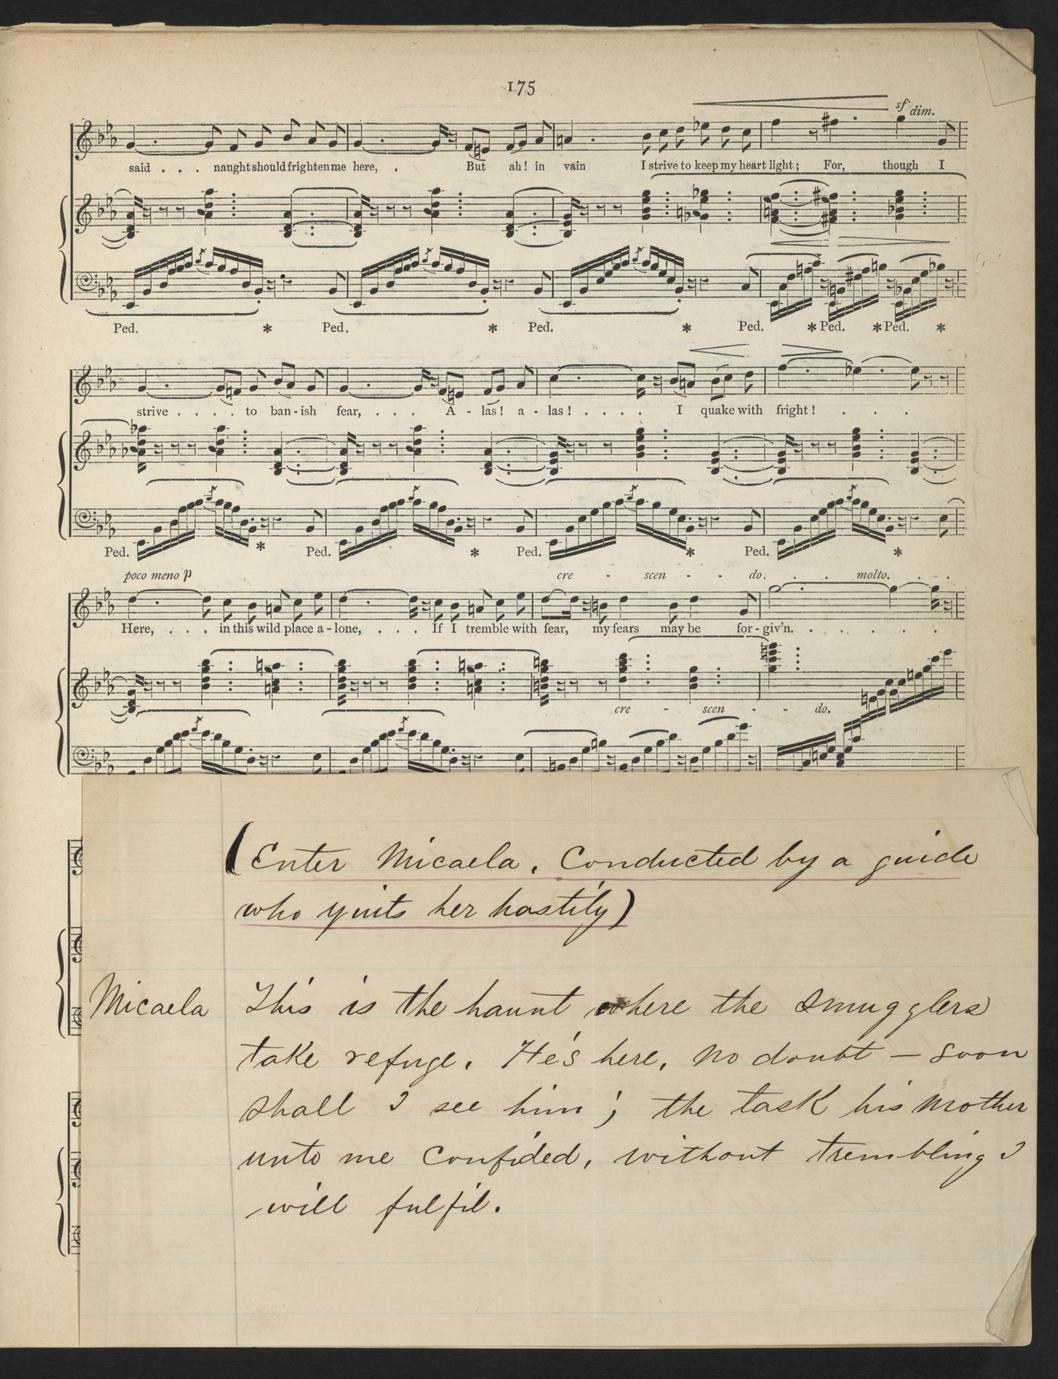 175
sf dim.
said . . . naught should frighten me here, . But ah! in vain I strive to keep my heart light; For, though I
Ped. * Ped. * Ped. * Ped. * Ped. * Ped. *
strive . . . . to ban-ish fear, . . . A - las! a - las! . . . . I quake with fright! . . .
Ped. * Ped. * Ped. * Ped. *
poco meno p cre - scen - - do. . . molto. . .
Here, . . . in this wild place a-lone, . . . If I tremble with fear, my fears may be for-giv'n. . . . . . .
cre - scen - - do.
(Enter Micaela, Conducted by a guide
who quits her hastily)
Micaela This is the haunt where the Smugglers
take refuge. He's here, no doubt — soon
shall I see him; the task his mother
unto me Confided, without trembling I
will fulfil.